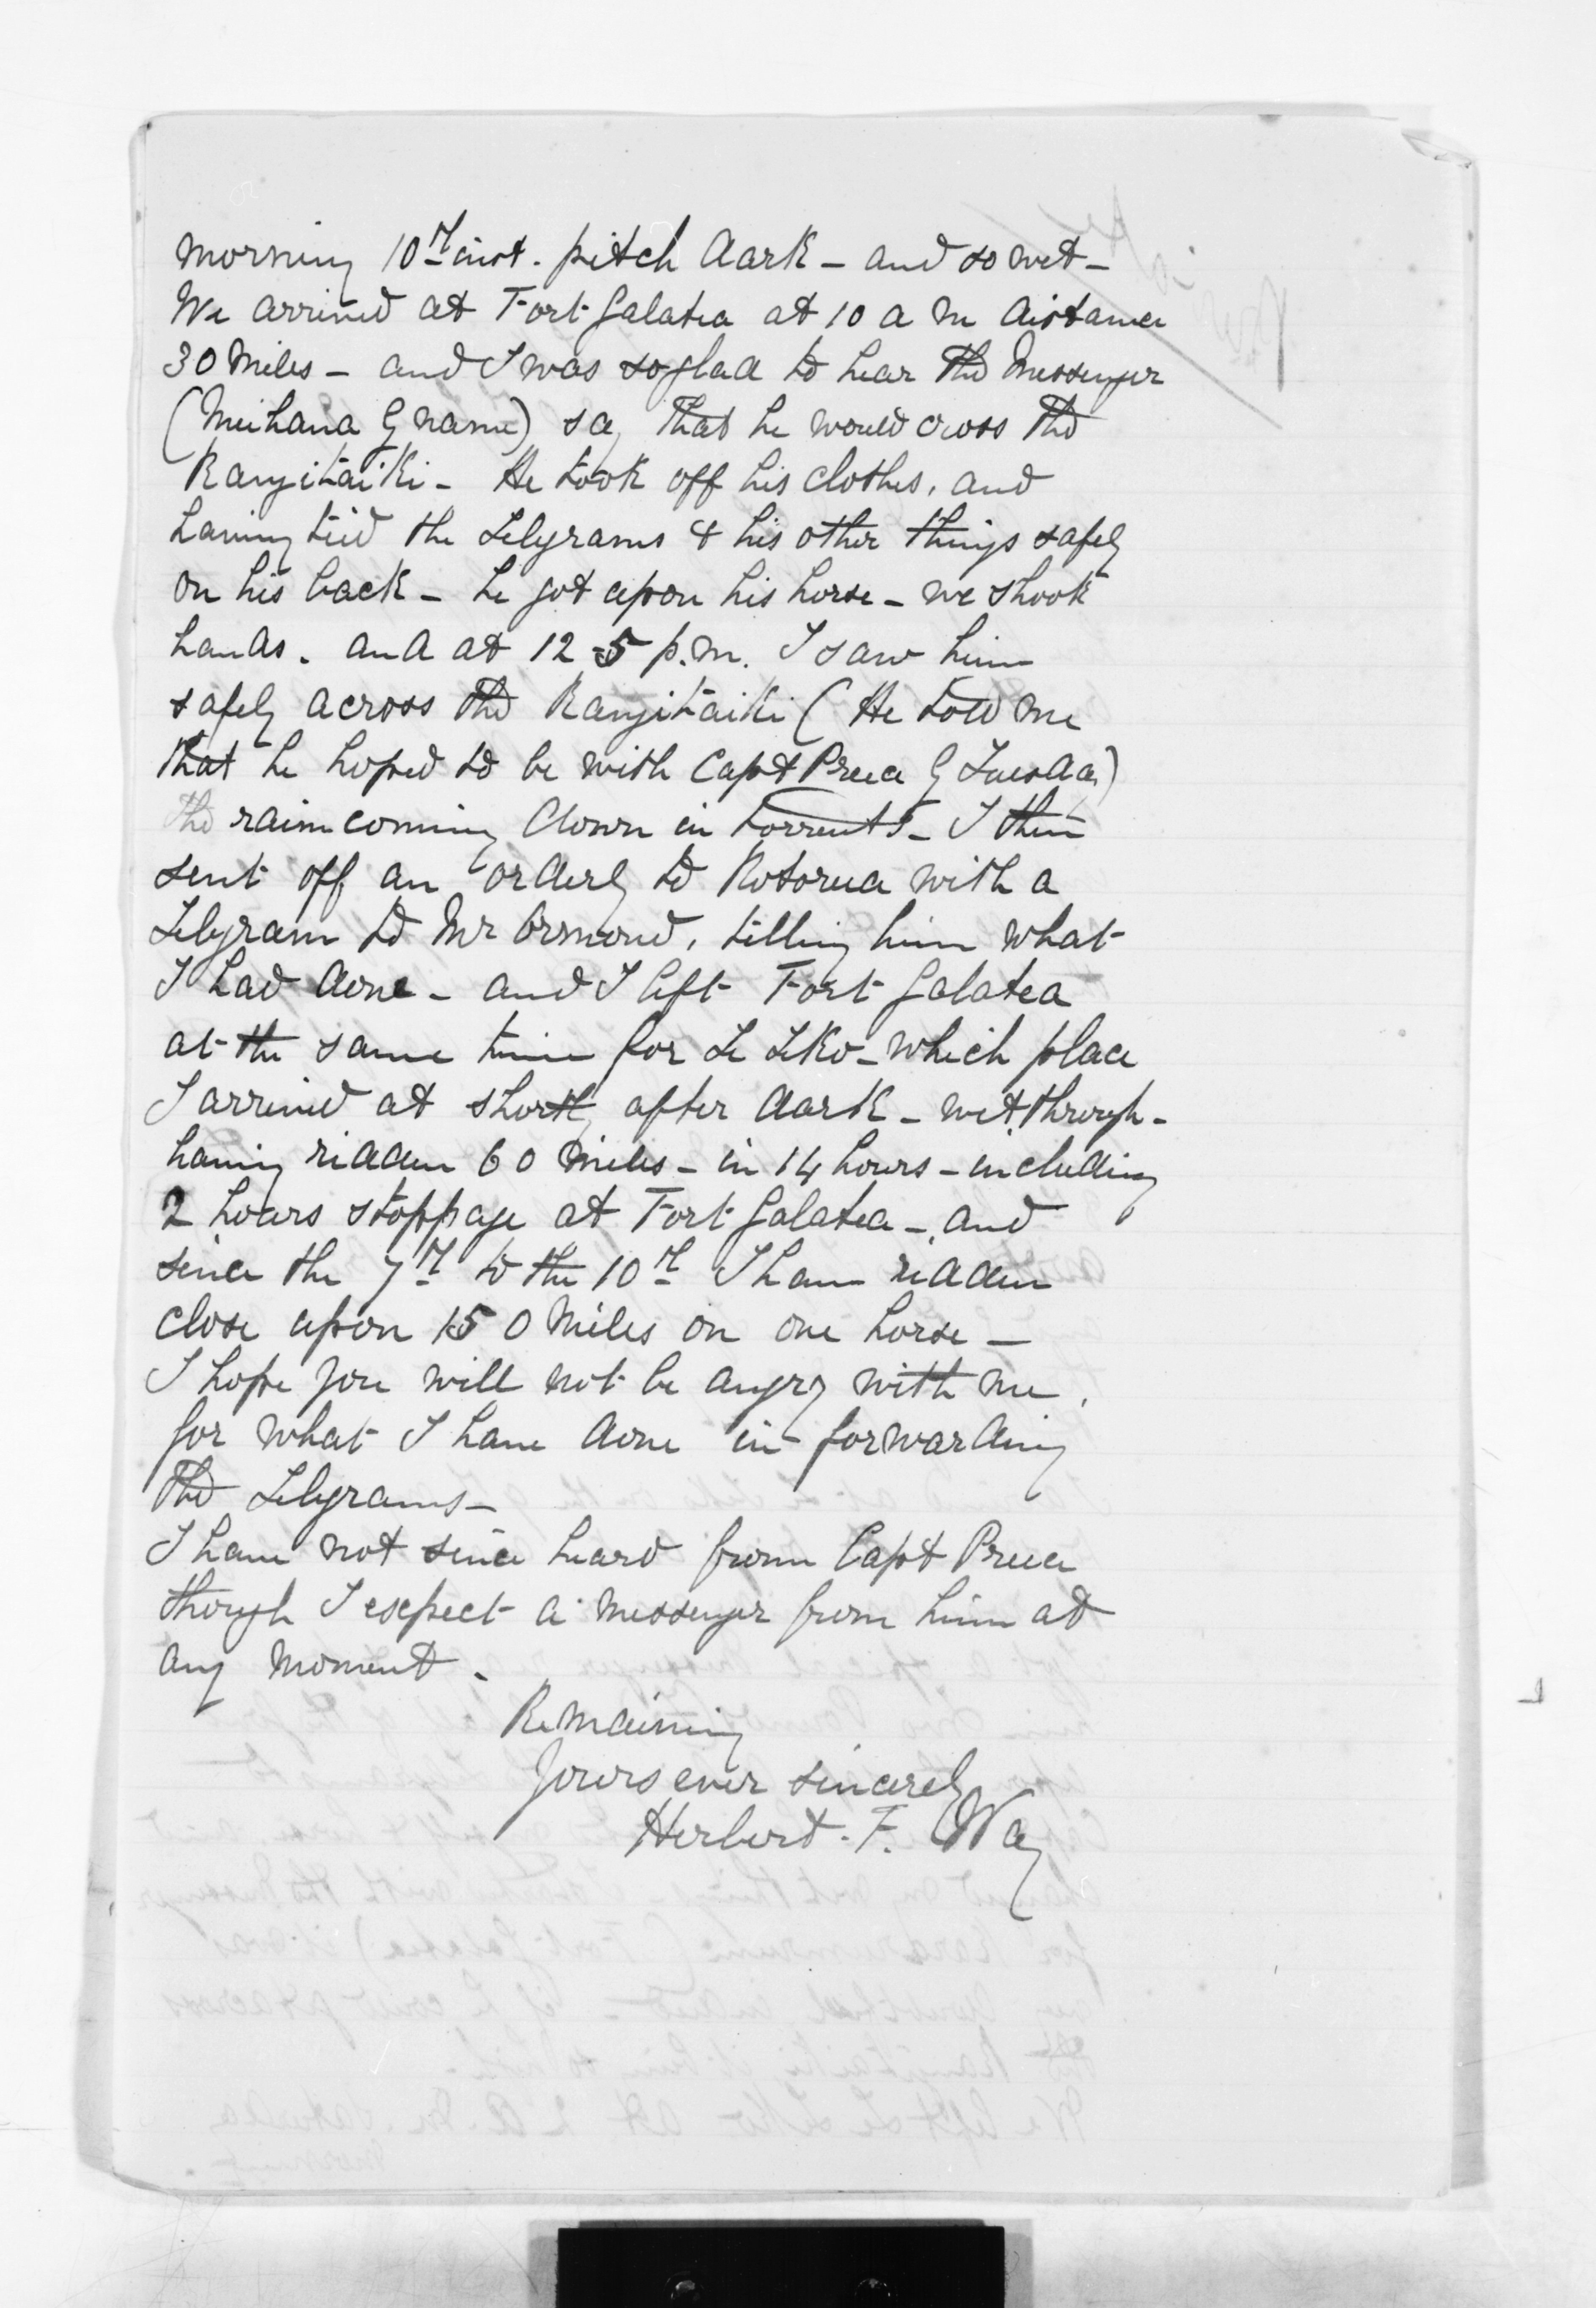 morning 10th inst. pitch dark - and so wet -
We arrived at Fort Galatea at 10 a m distance
30 Miles - and I was so glad to hear the Messenger
(Meihana by name) say that he would cross the
Rangitaiki - He took off his clothes, and
having tied the Telegrams & his other things safely
on his back - he got upon his horse - we shook
hands. and at 12-5 p.m. I saw him
safely across the Rangitaiki (He told me
that he hoped to be with Capt Preece by Tuesday)
the rain coming down in torrents - I then
sent off an orderly to Rotorua with a
Telegram to Mr Ormond, telling him what
I had done - and I left Fort Galatea
at the same time for Te Teko - which place
I arrived at shortly after dark - wet through -
having ridden 60 Miles - in 14 hours - including
2 hours stoppage at Fort Galatea - and
since the 7th to the 10th I have ridden
close upon 150 Miles on one horse -
I hope you will not be angry with me,
for what I have done in forwarding
the Telegrams -
I have not since heard from Capt Preece
though I expect a messenger from him at
any moment -
Remaining
Yours ever sincerely
Herbert. F. Way